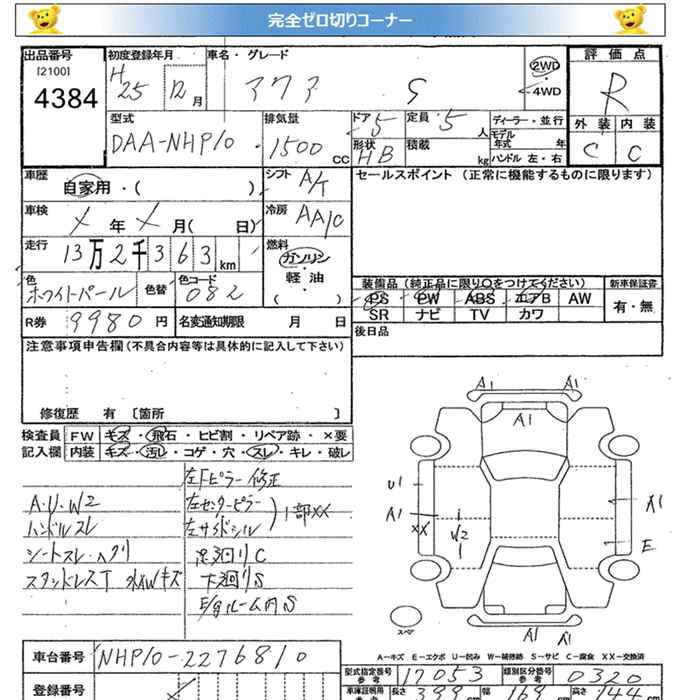 完全ゼロ切りコーナー
出品番号 初度登録年月 車名・グレード 評価点
[2100] H 25 12月 アクア S 2WD・4WD R
4384
外装 内装
C C
型式 DAA-NHP10 排気量 1500cc ドア 5 定員 5人 ディーラー・並行
形状 HB 積載 kg モデル年式 年
ハンドル 左・右
車歴 自家用・( ) シフト A/T セールスポイント (正常に機能するものに限ります)
車検 X年X月( 日) 冷房 AA/C
走行 13万2千363km 燃料 ガソリン・軽油・( )
色 ホワイトパール 色替 色コード 082 装備品 (純正品に限り○をつけてください) 新車保証書
PS PW ABS エアB AW 有・無
R券 9980円 名変通知期限 月 日 SR ナビ TV カワ
後日品
注意事項申告欄(不具合内容等は具体的に記入して下さい)
修復歴 有 〔箇所 〕
検査員 FW キズ・飛石・ヒビ割・リペア跡・×要
記入欄 内装 キズ・汚レ・コゲ・穴・スレ・キレ・破レ
左Fピラー修正
A・U・W2 左センターピラー
ハンドルスレ 左サイドシル 1部XX
シートスレ・ヘタリ 足廻りC
スタッドレスT 水AWキズ 下廻りS
E/gルーム内S
A1 A1
A1
U1
A1 A1
XX W2
E
スペア A1 A1
A-キズ E-エクボ U-凹み W-補修跡 S-サビ C-腐食 XX-交換済
車台番号 NHP10-2276810 型式指定番号 参考 17053 類別区分番号 参考 0320
登録番号 車庫証明用 参考 長さ 399cm 幅 169cm 高さ 144cm